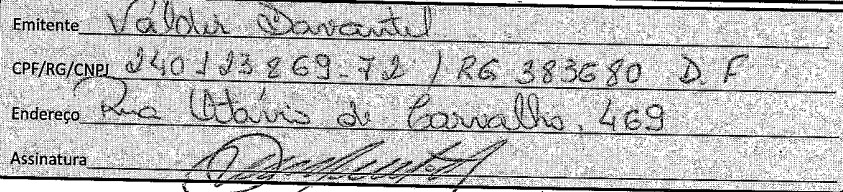 Emitente Valdir Davantel
CPF/RG/CNPJ 240123869-72 / RG 383680 D.F
Endereço Rua Otávio de Carvalho, 469
Assinatura